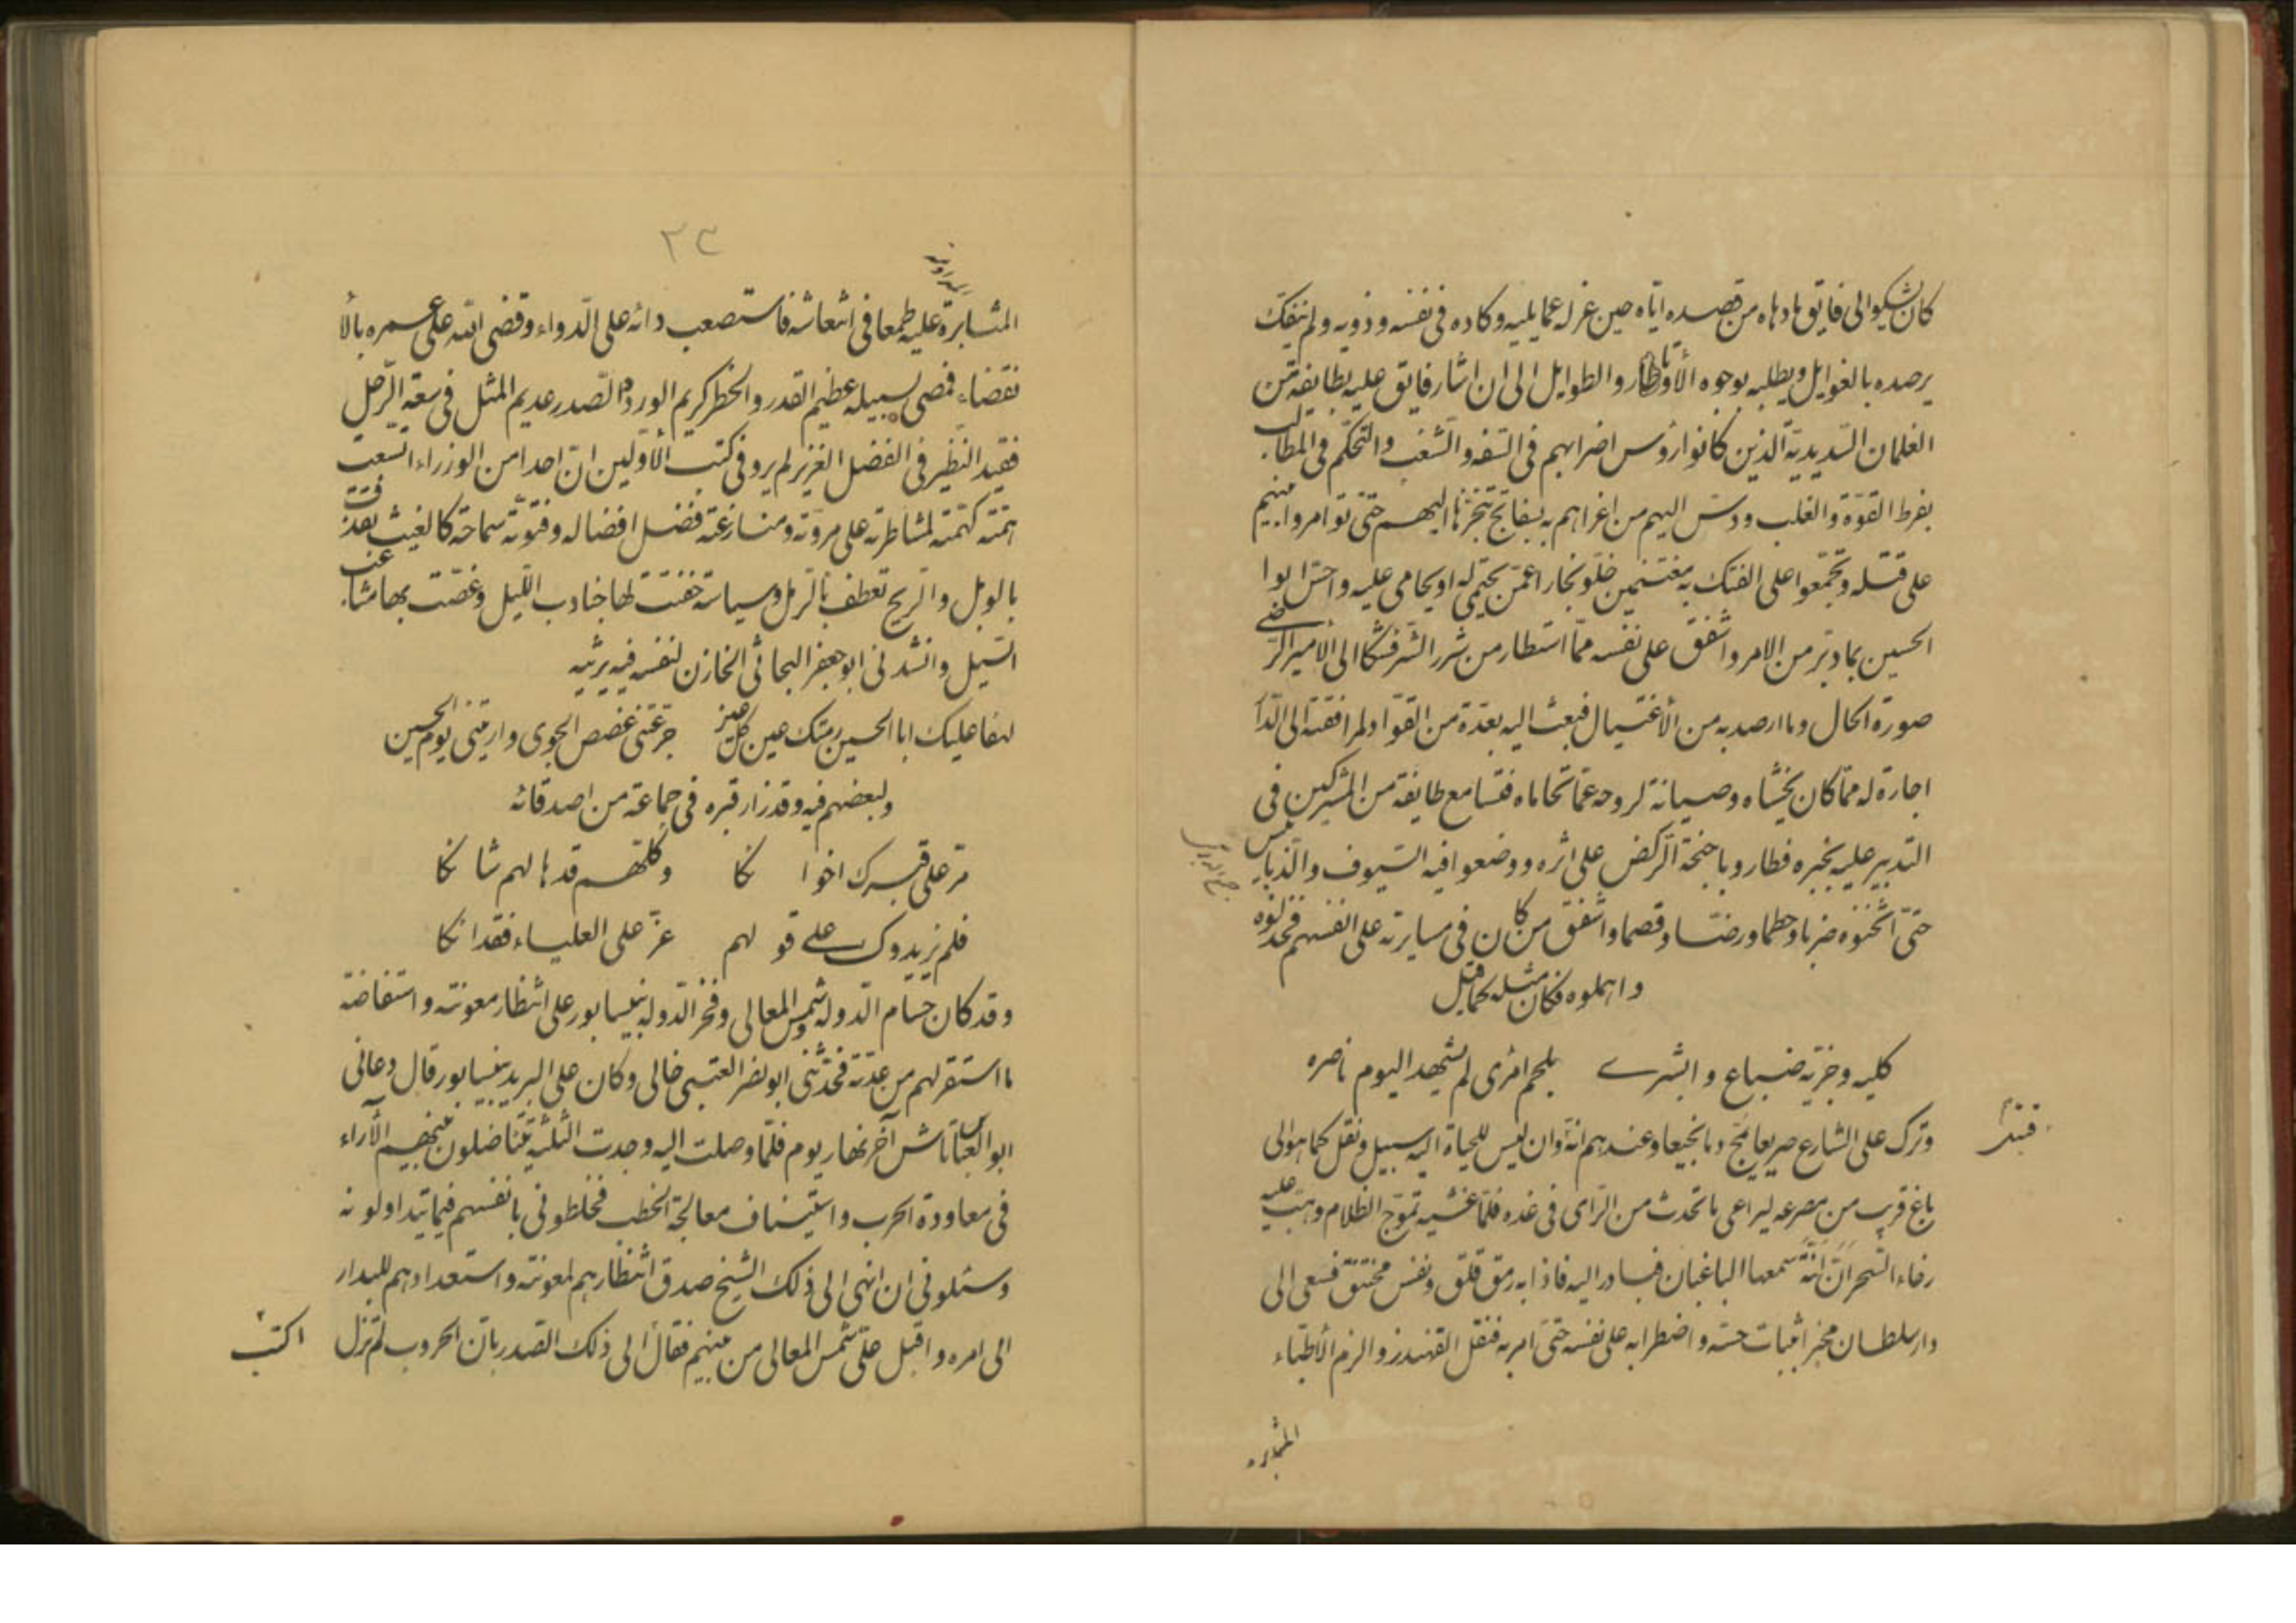 كان يشكوا الى فايق ما دهاه من قصده اياه حين عزله عما يليه وكاده فى نفسه وذويه ولم ينفك
يرصده بالغوايل ويطلبه بوجوه الأوتار والطوايل الى ان اشار فايق عليه بطايفة من
الغلمان السديدية الذين كانوا رؤس اضرابهم فى السفه والشغب والتحكم فى المطالب
بفرط القوة والغلب ودس اليهم من اغراهم به بنفايج تنجزها اليهم حتى توامروا بينهم
على قتله وتجمعوا على الفتك به مغتنمين خلو بخارا عمن يحتمى له او يحامى عليه واحس ابوا
الحسين بما دبر من الامر واشفق على نفسه مما استطار من شرر الشر فشكا الى الأمير الرضى
صورة الحال وما ارصد به من الأغتيال فبعث اليه بعدة من القواد لمرافقته الى الدار
اجارة له مما كان يخشاه وصيانة لروحه عما تحاماه فتسامع طايفة من المشركين فى
التدبير عليه بخبره فطاروا باجنحة الركض على اثره ووضعوا فيه السيوف والدبابيس
حتى اثخنوه ضربا وحطما ورضا وقصما واشفق من كان فى مسايرته على انفسهم فخذلوه
واهملوه فكان مثله كما قيل
كليه وجزيه ضباع وابشرى بلحم امرئ لم يشهد اليوم ناصره
وترك على الشارع صريعا يمج دما نجيعا وعندهم انه وان ليس للحياة اليه سبيل ونقل كما هو الى
باغ قريب من مصرعه ليراعى ما تحدث من الراى فى غده فلما غشيه تموج الظلام وهبت عليه
رخاء السحر ان انة سمعها الباغبان فبادر اليه فاذا به رمق قلق ونفس مختنق فسعى الى
دار سلطان مخبرا ثبات حسه واضطرابه على نفسه حتى امر به فنقل القهندز والزم الأطباء
المثابرة
٢٣
المثابرة عليه طمعا فى انتعاشه فاستصعب دائه على الدواء وقضى الله على عمره بالأ
نقضاء فمضى لسبيله عظيم القدر والخطر كريم الورد والصدر عديم المثل فى سعة الرحل
فقيد النظير فى الفضل الغزير لم يرو فى كتب الأولين ان احدا من الوزراء اتسعت
همته كهمته لمشاطرته على مروته ومنازعته فضل افضاله وفتوته سماحة كالغيث
بالوبل والريح تعطف بالرمل وسياسة خفتت لها جنادب الليل وغصت بها مشاعب
السيل وانشدنى ابو جعفر البحاثى الخازن لنفسه فيه يرثيه
لهفا عليك ابا الحسين رمتك عين كل عين جرعتنى غصص الجوى واريتنى يوم الحسين
ولبعضهم فيه وقد زار قبره فى جماعة من اصدقائه
مر على قبرك اخوانكا وكلهم قد هالهم شانكا
فلم يزيدوك على قولهم عز على العلياء فقدانكا
وقد كان حسام الدولة شمس المعالى وفخر الدولة بنيسابور على انتظار معونته واستفاضة
ما استقر لهم من عدته فحدثنى ابو نصر العتبى خالى وكان على البريد بنيسابور قال دعانى
ابو العباس تاش آخر نهار يوم فلما وصلت اليه وجدت الثلثة يتناضلون بينهم الأراء
فى معاودة الحرب واستيناف معالجة الخطب فخلطونى بانفسهم فيما يتداولونه
وسئلونى ان انهى الى ذلك الشيخ صدق انتظارهم لمعونته واستعدادهم للبدار
الى امره واقبل على شمس المعالى من بينهم فقال الى ذلك الصدر بان الحروب لم تزل
اكتب